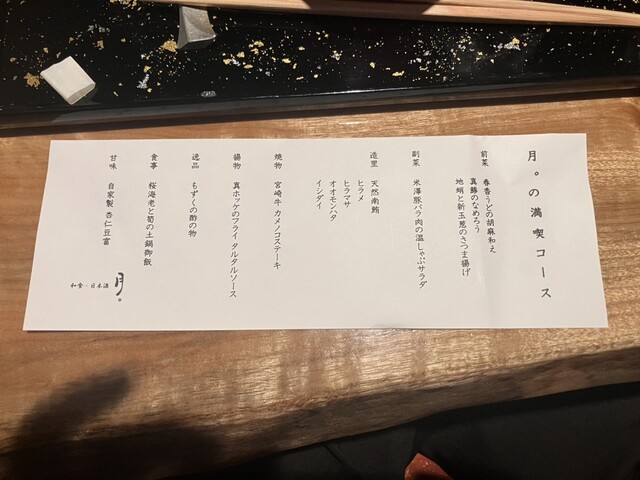 月。の満喫コース
前菜 春香うどの胡麻和え
真鯵のなめろう
地蛸と新玉葱のさつま揚げ
副菜 米澤豚バラ肉の温しゃぶサラダ
造里 天然南鮪
ヒラメ
ヒラマサ
オオモンハタ
イシダイ
焼物 宮崎牛 カメノコステーキ
揚物 真ホッケのフライ タルタルソース
逸品 もずくの酢の物
食事 桜海老と筍の土鍋御飯
甘味 自家製 杏仁豆富
月。
和食・日本酒